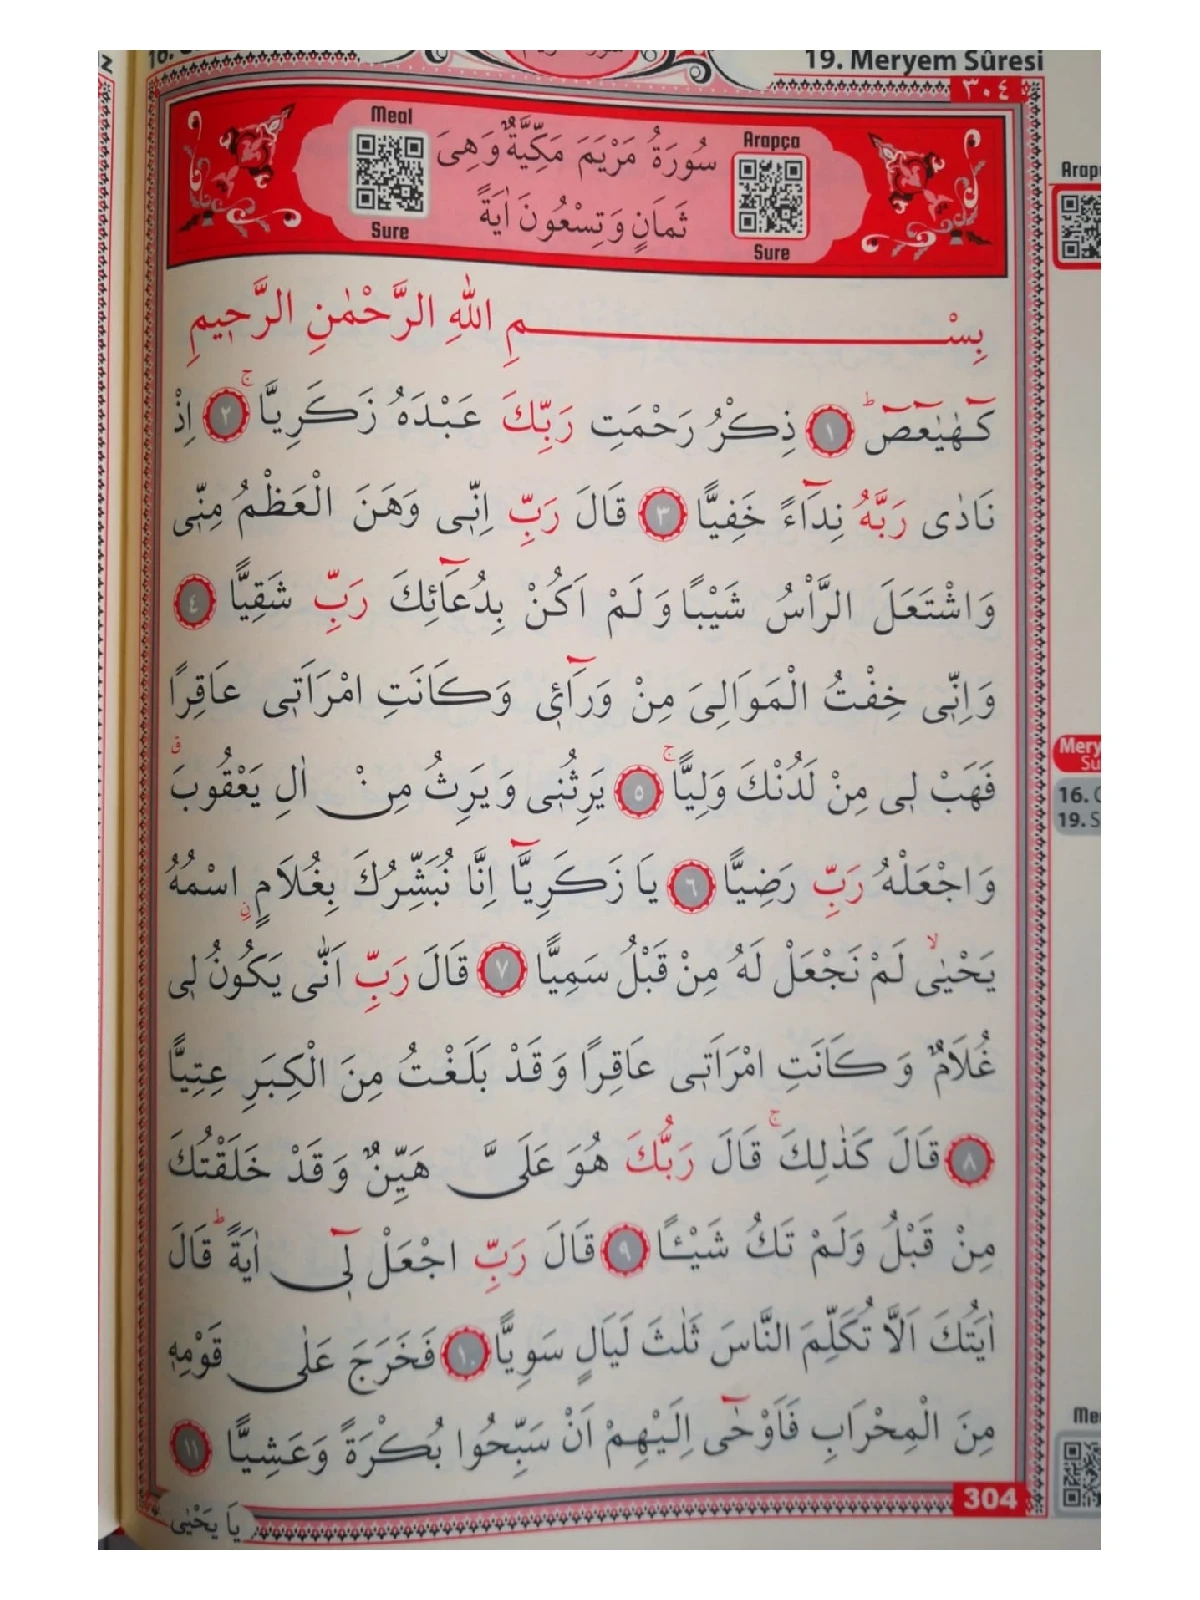 19. Meryem Sûresi
٣٠٤
Meal
Arapça
سُورَةُ مَرْيَمَ مَكِّيَّةٌ وَهِىَ
ثَمَانٍ وَتِسْعُونَ اٰيَةً
Sure
Sure
بِسْمِ اللّٰهِ الرَّحْمٰنِ الرَّحٖيمِ
كٓهٰيٰعٓصٓ ۜ ﴿١﴾ ذِكْرُ رَحْمَتِ رَبِّكَ عَبْدَهُ زَكَرِيَّا ۚ ﴿٢﴾ اِذْ
نَادٰى رَبَّهُ نِدَٓاءً خَفِيًّا ﴿٣﴾ قَالَ رَبِّ اِنّٖى وَهَنَ الْعَظْمُ مِنّٖى
وَاشْتَعَلَ الرَّأْسُ شَيْبًا وَلَمْ اَكُنْ بِدُعَٓائِكَ رَبِّ شَقِيًّا ﴿٤﴾
وَاِنّٖى خِفْتُ الْمَوَالِىَ مِنْ وَرَٓائٖى وَكَانَتِ امْرَاَتٖى عَاقِرًا
فَهَبْ لٖى مِنْ لَدُنْكَ وَلِيًّا ۚ ﴿٥﴾ يَرِثُنٖى وَيَرِثُ مِنْ اٰلِ يَعْقُوبَ ۗ
وَاجْعَلْهُ رَبِّ رَضِيًّا ﴿٦﴾ يَا زَكَرِيَّٓا اِنَّا نُبَشِّرُكَ بِغُلَامٍ اسْمُهُ
يَحْيٰى ۙ لَمْ نَجْعَلْ لَهُ مِنْ قَبْلُ سَمِيًّا ﴿٧﴾ قَالَ رَبِّ اَنّٰى يَكُونُ لٖى
غُلَامٌ وَكَانَتِ امْرَاَتٖى عَاقِرًا وَقَدْ بَلَغْتُ مِنَ الْكِبَرِ عِتِيًّا
﴿٨﴾ قَالَ كَذٰلِكَ ۚ قَالَ رَبُّكَ هُوَ عَلَىَّ هَيِّنٌ وَقَدْ خَلَقْتُكَ
مِنْ قَبْلُ وَلَمْ تَكُ شَيْـًٔا ﴿٩﴾ قَالَ رَبِّ اجْعَلْ لٖٓى اٰيَةً ۜ قَالَ
اٰيَتُكَ اَلَّا تُكَلِّمَ النَّاسَ ثَلٰثَ لَيَالٍ سَوِيًّا ﴿١٠﴾ فَخَرَجَ عَلٰى قَوْمِهٖ
مِنَ الْمِحْرَابِ فَاَوْحٰٓى اِلَيْهِمْ اَنْ سَبِّحُوا بُكْرَةً وَعَشِيًّا ﴿١١﴾
304
يَا يَحْيٰى
16.
19.